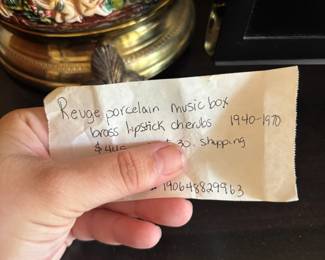 Reuge porcelain music box
brass lipstick cherubs 1940-1970
30. shipping
190648829963